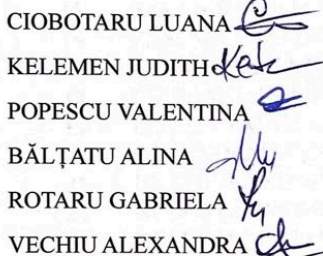 CIOBOTARU LUANA
KELEMEN JUDITH
POPESCU VALENTINA
BĂLȚATU ALINA
ROTARU GABRIELA
VECHIU ALEXANDRA